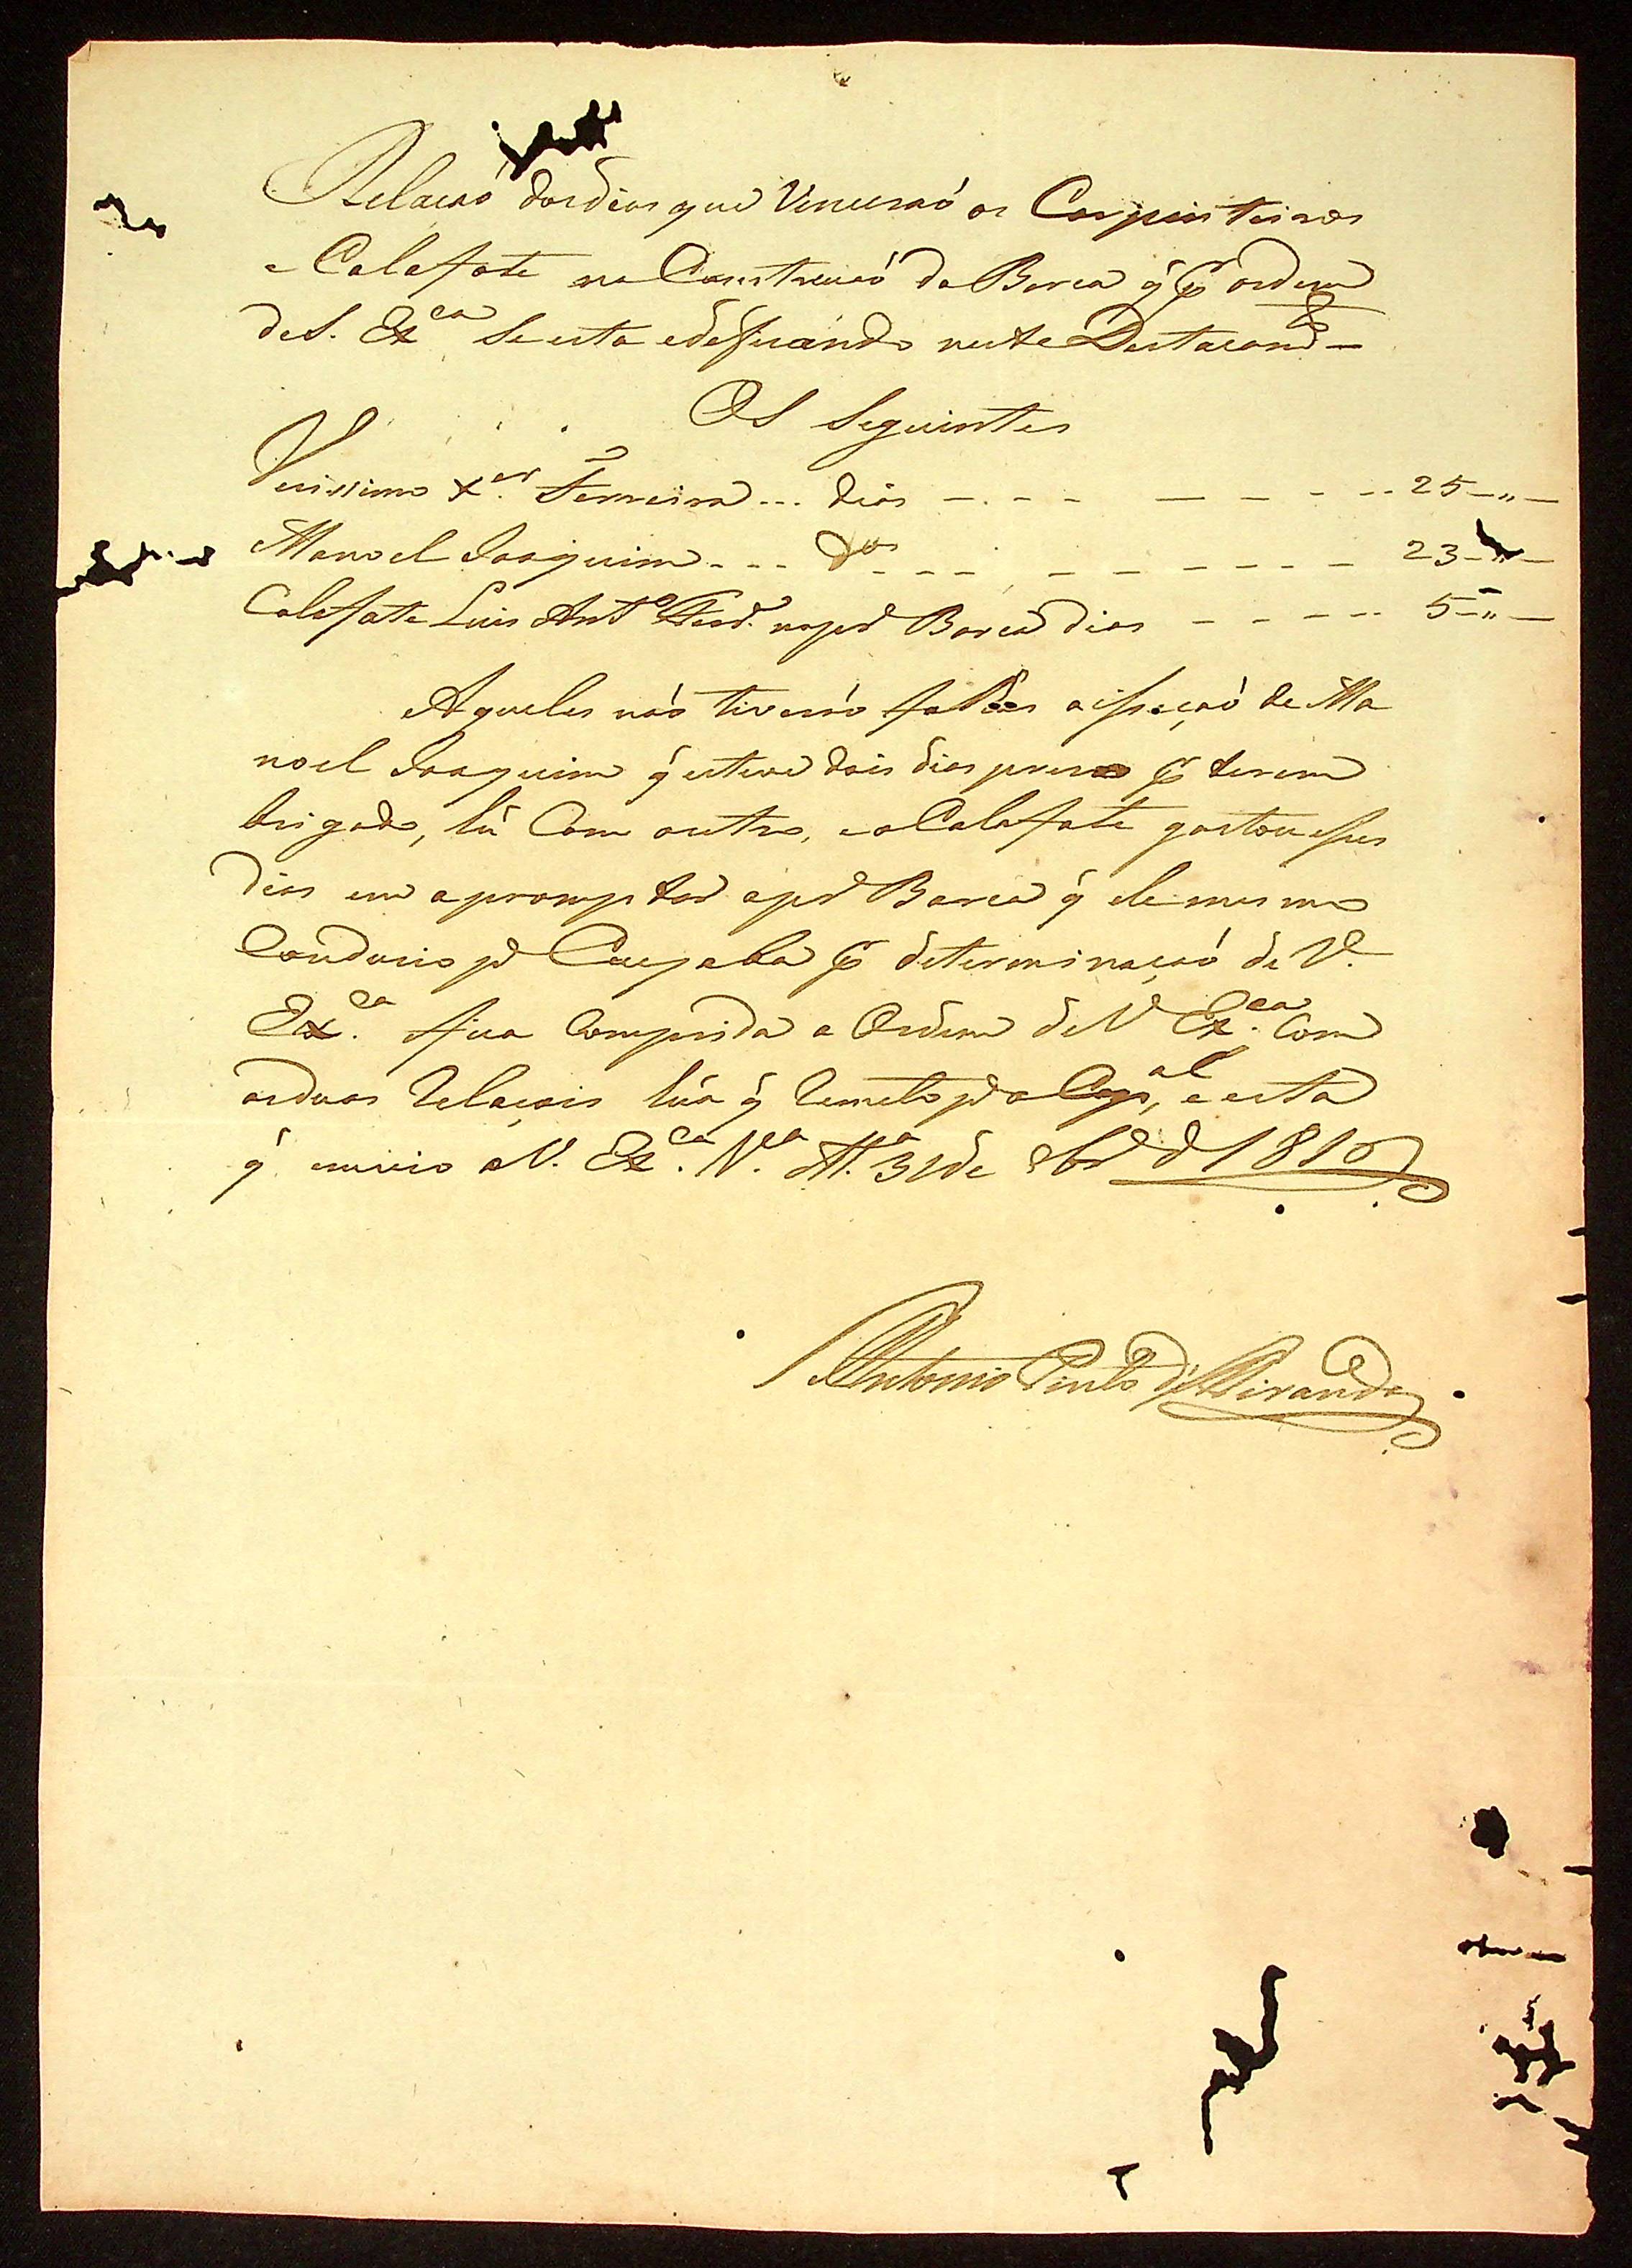 Relacaó dos dias que Venceraó os Carpinteiros
e Calafate na Construcaó da Barca q̃ p̱ ordem
de S. Exca Se esta edeficando neste Destacamto
OS Seguintes
Verissimo Xer. Ferreira ... dias — . - - — - - - .. 25 — „ —
Manoel Joaquim - - - dos - - - - - - - - - - 23 — „ —
Calafate Luis Anto na pa Barca dias - - - - .. 5 — „ —
Aqueles naó tiveraó falhas aisseçaó de Ma
noel Joaquim q̃ esteve dois dias preso p̱ terem
brigado, hũ Com outro, e o Calafate gastou esses
dias em a promptar a pa Barca q̃ ele mesmo
Condusio pa Cuyaba p̱ determinacaó de V.
Exca. fica Comprida a Ordem de V Exca. Com
as duas Relacois hũa q̃ Remeto pa a Capal, e esta
q̃ envio a V. Exca. Va. Ma. 31 de 8bro d 1810
Antonio Pinto d' Miranda